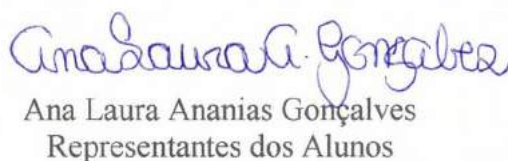 Ana Laura A. Gonçalves
Ana Laura Ananias Gonçalves
Representantes dos Alunos